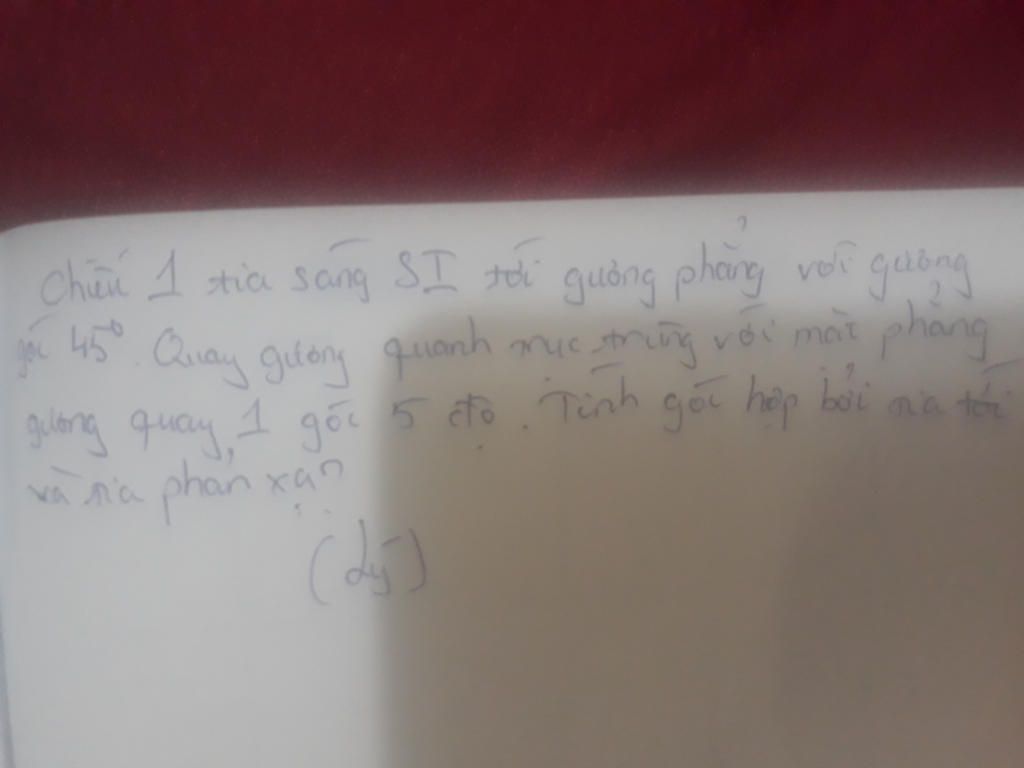 Chiếu 1 tia sáng SI tới gương phẳng với gương
góc 45°. Quay gương quanh trục trùng với mặt phẳng
gương quay 1 góc 5 độ. Tính góc hợp bởi tia tới
và tia phản xạ?
(Lý)